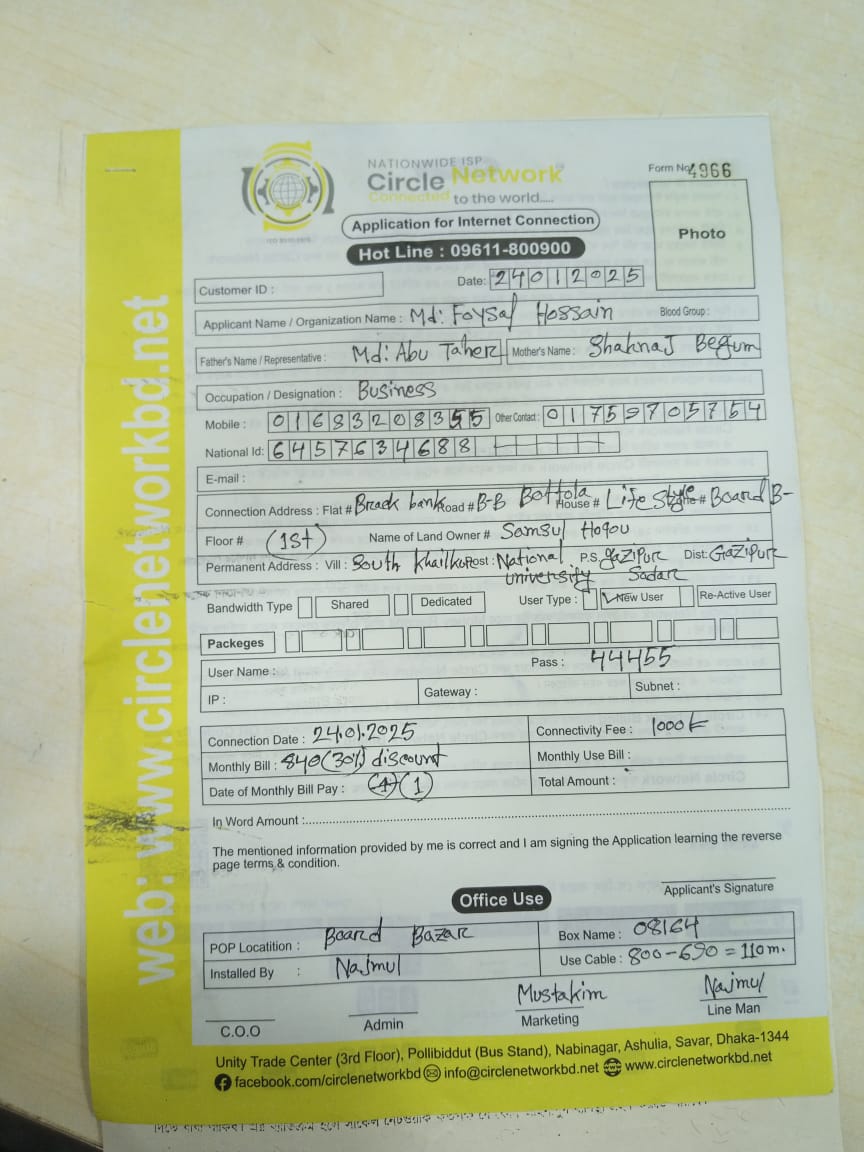 NATIONWIDE ISP
Circle Network
Connected to the world.....
Form No 4966
Photo
Application for Internet Connection
Hot Line : 09611-800900
Date: 24012025
Customer ID :
Applicant Name / Organization Name : Md: Foysal Hossain Blood Group :
Father's Name / Representative : Md: Abu Taher Mother's Name : Shahnaj Begum
Occupation / Designation : Business
Mobile : 01683208355 Other Contact : 01759705754
National Id: 6457634688
E-mail :
Connection Address : Flat # Brack bank Road # B-B Bottola House # Life Style # Board B-
Floor # (1st) Name of Land Owner # Samsul Hoque
Permanent Address : Vill : South Khailkur Post : National university P.S. gazipur Sadar Dist: Gazipur
Bandwidth Type Shared Dedicated User Type : New User Re-Active User
Packeges
User Name : Pass : 44455
IP : Gateway : Subnet :
Connection Date : 24.01.2025 Connectivity Fee : 1000
Monthly Bill : 840 (30%) discount Monthly Use Bill :
Date of Monthly Bill Pay : (1) Total Amount :
In Word Amount :
The mentioned information provided by me is correct and I am signing the Application learning the reverse
page terms & condition.
Applicant's Signature
Office Use
POP Locatition : Board Bazar Box Name : 08164
Installed By : Najmul Use Cable : 800-690 = 110 m.
Mustakim Najmul
C.O.O Admin Marketing Line Man
Unity Trade Center (3rd Floor), Pollibiddut (Bus Stand), Nabinagar, Ashulia, Savar, Dhaka-1344
facebook.com/circlenetworkbd info@circlenetworkbd.net www.circlenetworkbd.net
web: www.circlenetworkbd.net